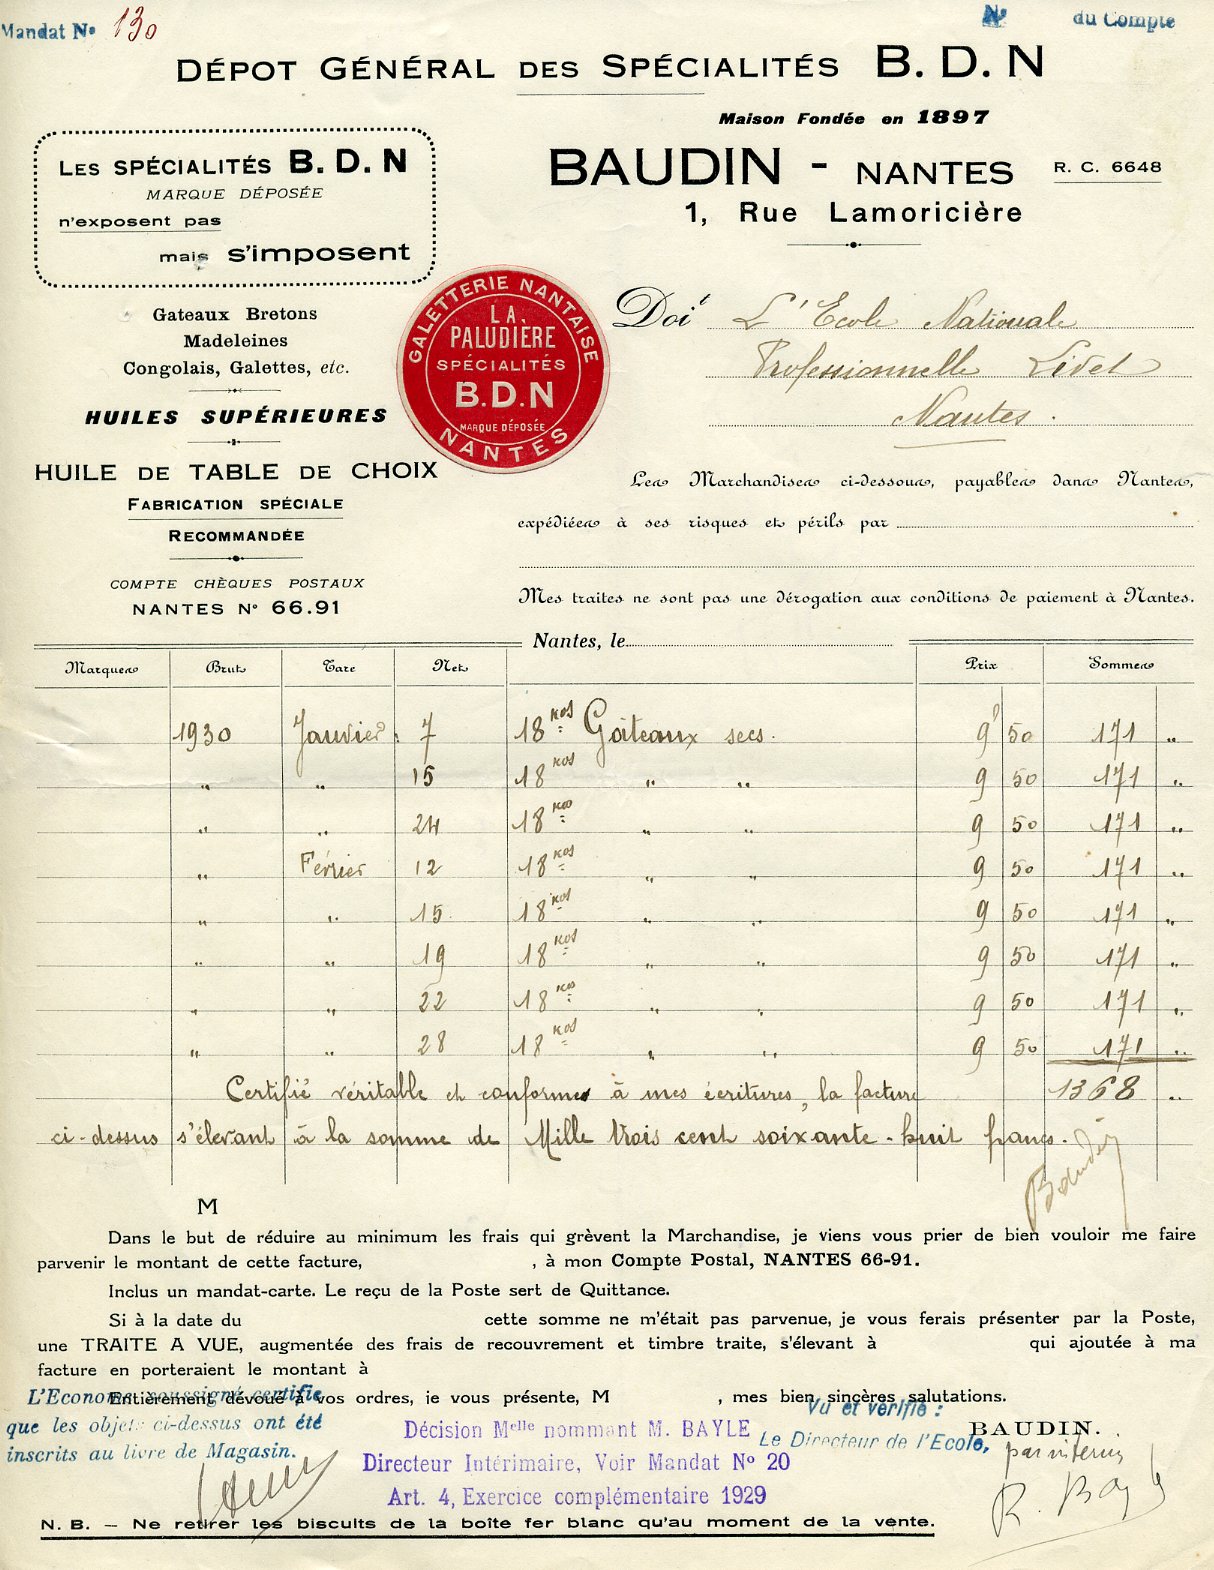 Mandat No 130
No du Compte
DÉPOT GÉNÉRAL DES SPÉCIALITÉS B. D. N
Maison Fondée en 1897
BAUDIN - NANTES R. C. 6648
1, Rue Lamoricière
LES SPÉCIALITÉS B. D. N
MARQUE DÉPOSÉE
n'exposent pas
mais s'imposent
Gateaux Bretons
Madeleines
Congolais, Galettes, etc.
HUILES SUPÉRIEURES
HUILE DE TABLE DE CHOIX
FABRICATION SPÉCIALE
RECOMMANDÉE
COMPTE CHÈQUES POSTAUX
NANTES No 66.91
GALETTERIE NANTAISE
LA
PALUDIÈRE
SPÉCIALITÉS
B.D.N
MARQUE DÉPOSÉE
NANTES
Doit L'Ecole Nationale
Professionnelle Livet
Nantes.
Les Marchandises ci-dessous, payables dans Nantes,
expédiées à ses risques et périls par
Mes traites ne sont pas une dérogation aux conditions de paiement à Nantes.
Nantes, le
Marques Brut Tare Net Prix Sommes
1930 Janvier 7 18 kos Gâteaux secs. 9f 50 171 "
" " 15 18 kos " " 9 50 171 "
" " 24 18 kos " " 9 50 171 "
" Février 12 18 kos " " 9 50 171 "
" " 15 18 kos " " 9 50 171 "
" " 19 18 kos " " 9 50 171 "
" " 22 18 kos " " 9 50 171 "
" " 28 18 kos " " 9 50 171 "
Certifié véritable et conforme à mes écritures, la facture 1368 "
ci-dessus s'élevant à la somme de Mille trois cent soixante-huit francs.
Baudin
M
Dans le but de réduire au minimum les frais qui grèvent la Marchandise, je viens vous prier de bien vouloir me faire
parvenir le montant de cette facture, , à mon Compte Postal, NANTES 66-91.
Inclus un mandat-carte. Le reçu de la Poste sert de Quittance.
Si à la date du cette somme ne m'était pas parvenue, je vous ferais présenter par la Poste,
une TRAITE A VUE, augmentée des frais de recouvrement et timbre traite, s'élevant à qui ajoutée à ma
facture en porteraient le montant à
Entièrement dévoué à vos ordres, je vous présente, M , mes bien sincères salutations.
BAUDIN.
L'Econome soussigné certifie
que les objets ci-dessus ont été
inscrits au livre de Magasin.
Décision Melle nommant M. BAYLE
Directeur Intérimaire, Voir Mandat No 20
Art. 4, Exercice complémentaire 1929
Vu et vérifié :
Le Directeur de l'Ecole,
par interim
R. Bayle
N. B. — Ne retirer les biscuits de la boîte fer blanc qu'au moment de la vente.